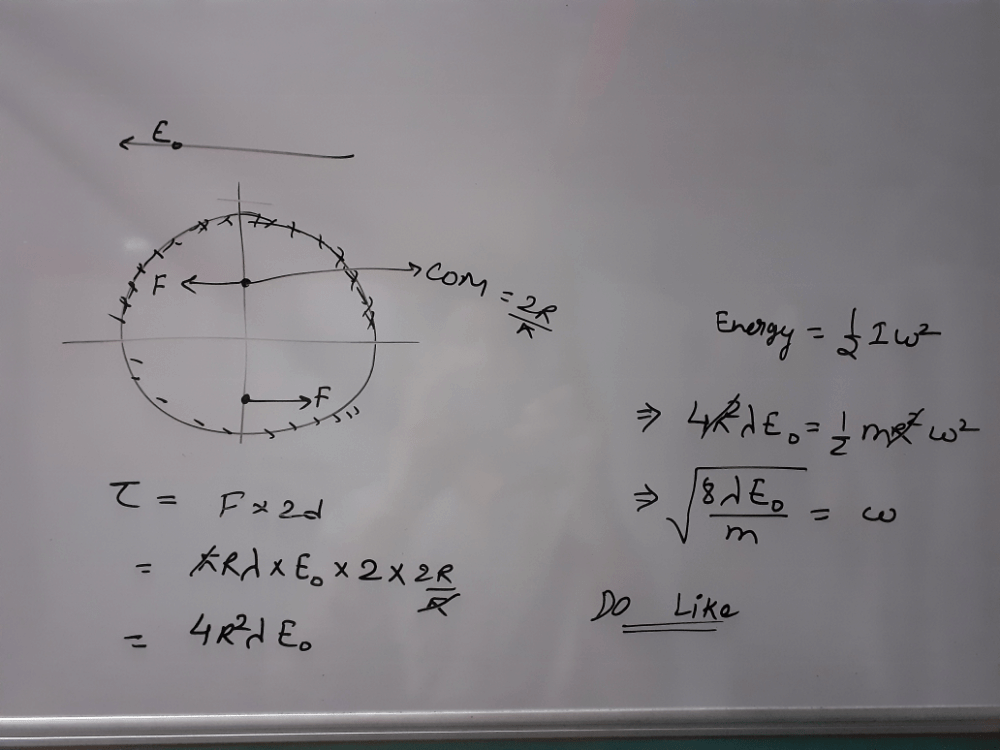 E₀
F
COM = 2R/π
F
τ = F × 2d
= πRλ × E₀ × 2 × 2R/π
= 4R²λE₀
Energy = 1/2 Iω²
⇒ 4R²λE₀ = 1/2 mR²ω²
⇒ √(8λE₀/m) = ω
Do Like